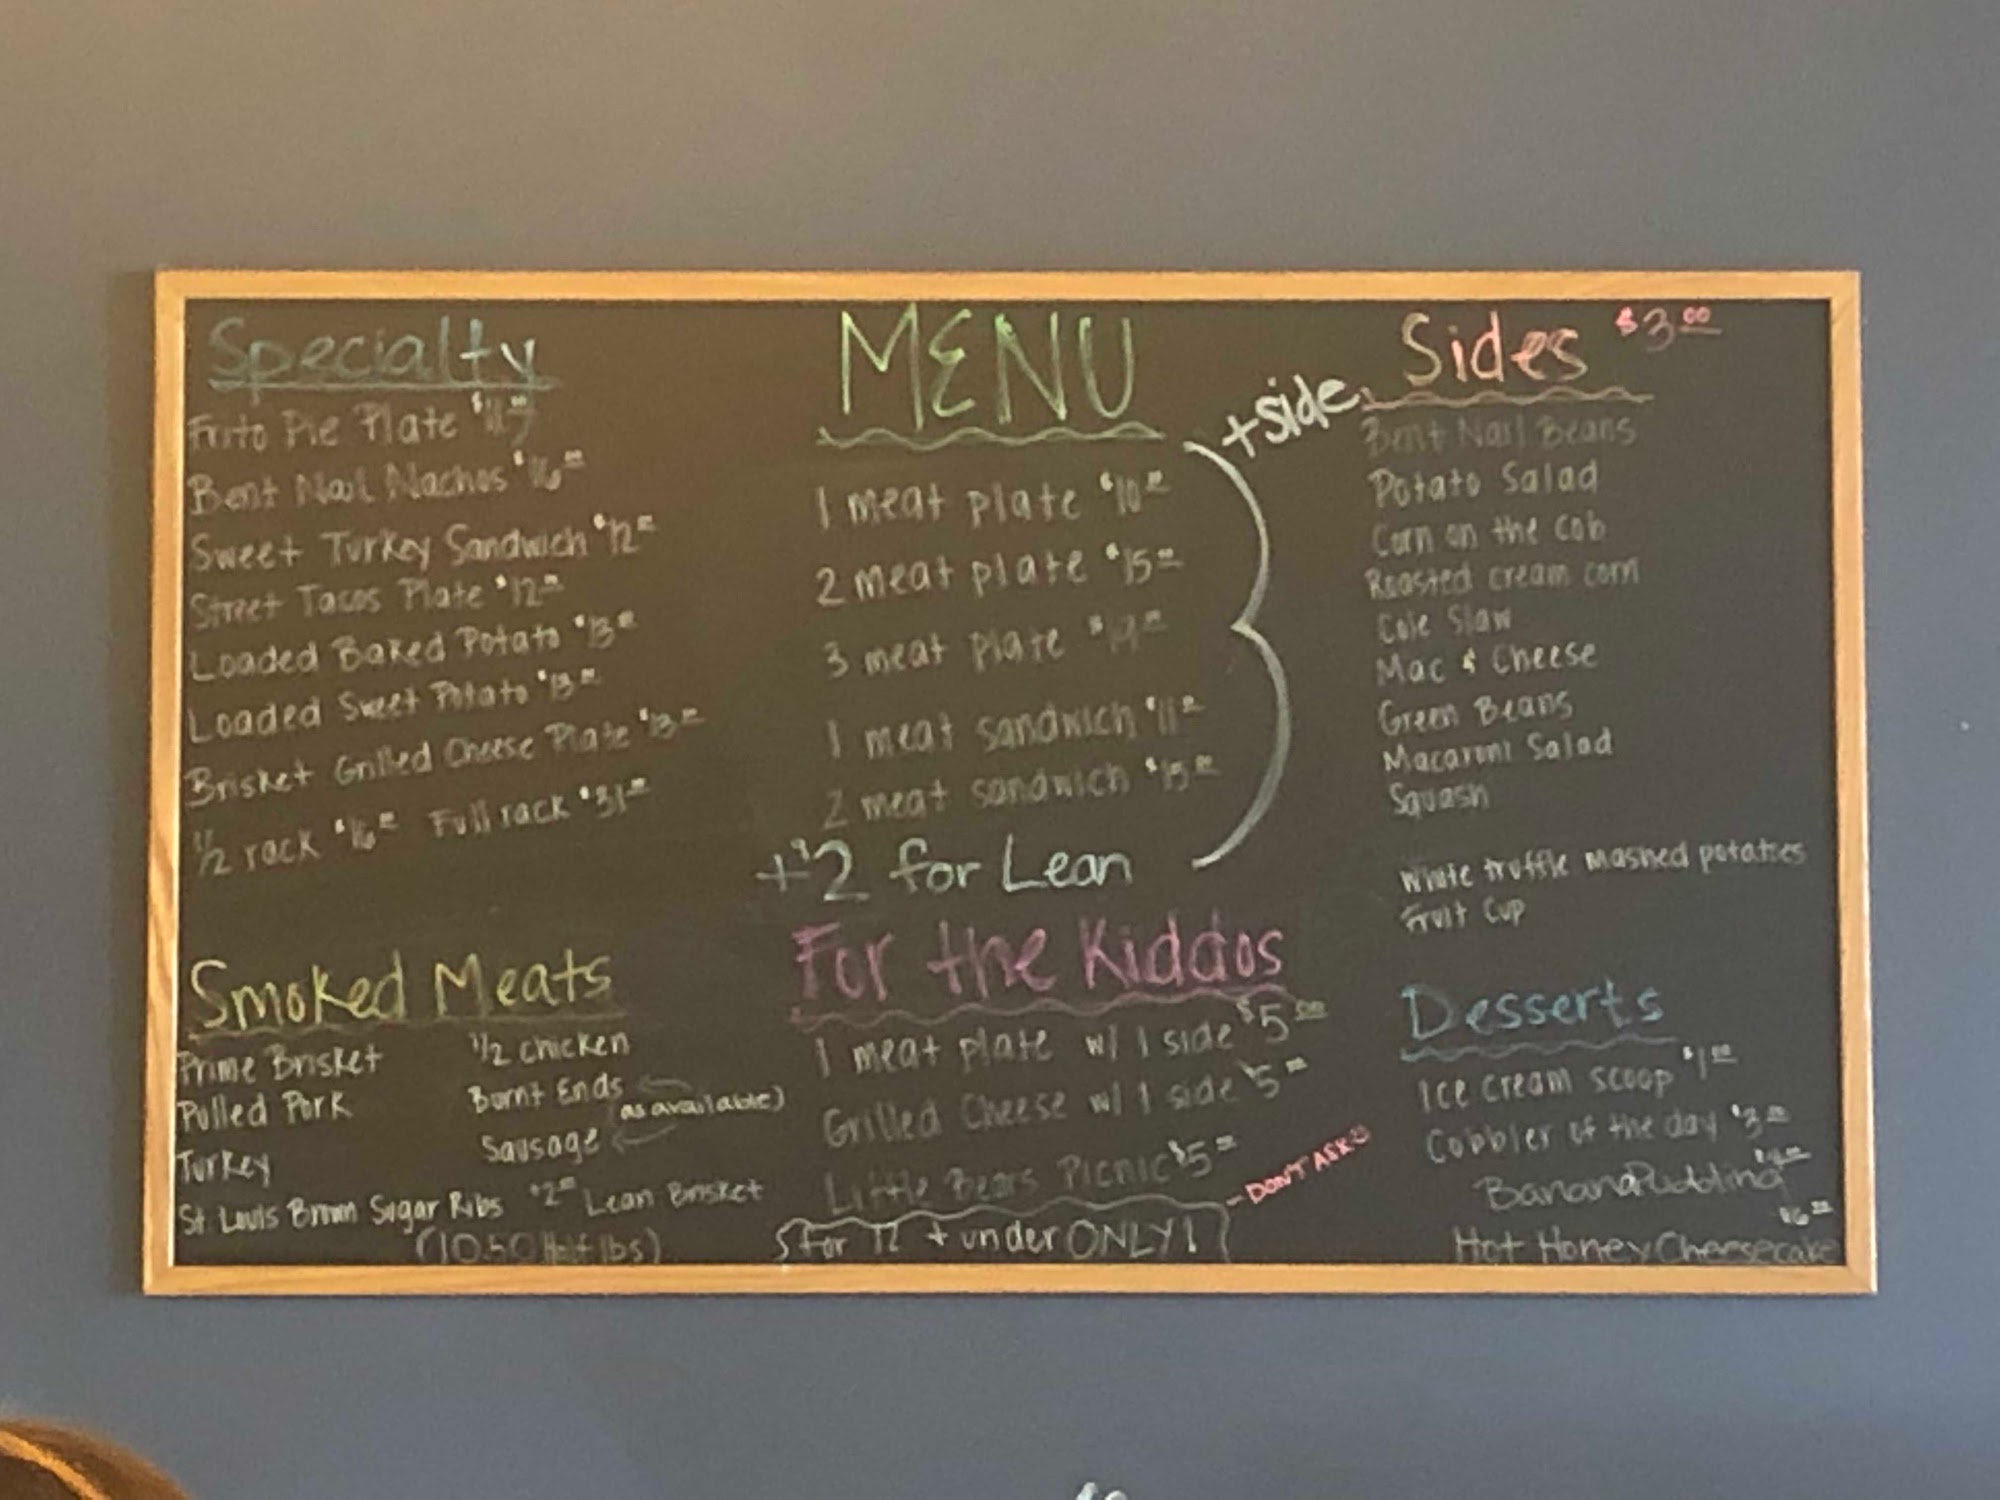 Specialty
Frito Pie Plate
Bent Nail Nachos $16.00
Sweet Turkey Sandwich $12.00
Street Tacos Plate $12.00
Loaded Baked Potato $13.00
Loaded Sweet Potato $13.00
Brisket Grilled Cheese Plate $13.00
1/2 rack $16.00 Full rack $31.00
Smoked Meats
Prime Brisket
Pulled Pork
Turkey
St Louis Brown Sugar Ribs
1/2 chicken
Burnt Ends
(as available)
Sausage
+2.00 Lean Brisket
(10.50 Half lbs)
MENU
1 meat plate $10.00
2 meat plate $15.00
3 meat plate $19.00
1 meat sandwich $11.00
2 meat sandwich $15.00
+$2 for Lean
+side
For the Kiddos
1 meat plate w/ 1 side $5.00
Grilled Cheese w/ 1 side $5.00
Little Bears Picnic $5.00
- DON'T ASK☺
for 12 + under ONLY!
Sides $3.00
Bent Nail Beans
Potato Salad
Corn on the cob
Roasted cream corn
Cole Slaw
Mac & Cheese
Green Beans
Macaroni Salad
Squash
White truffle mashed potatoes
Fruit Cup
Desserts
Ice cream scoop $1.00
Cobbler of the day $3.00
Banana Pudding
$6.00
Hot Honey Cheesecake